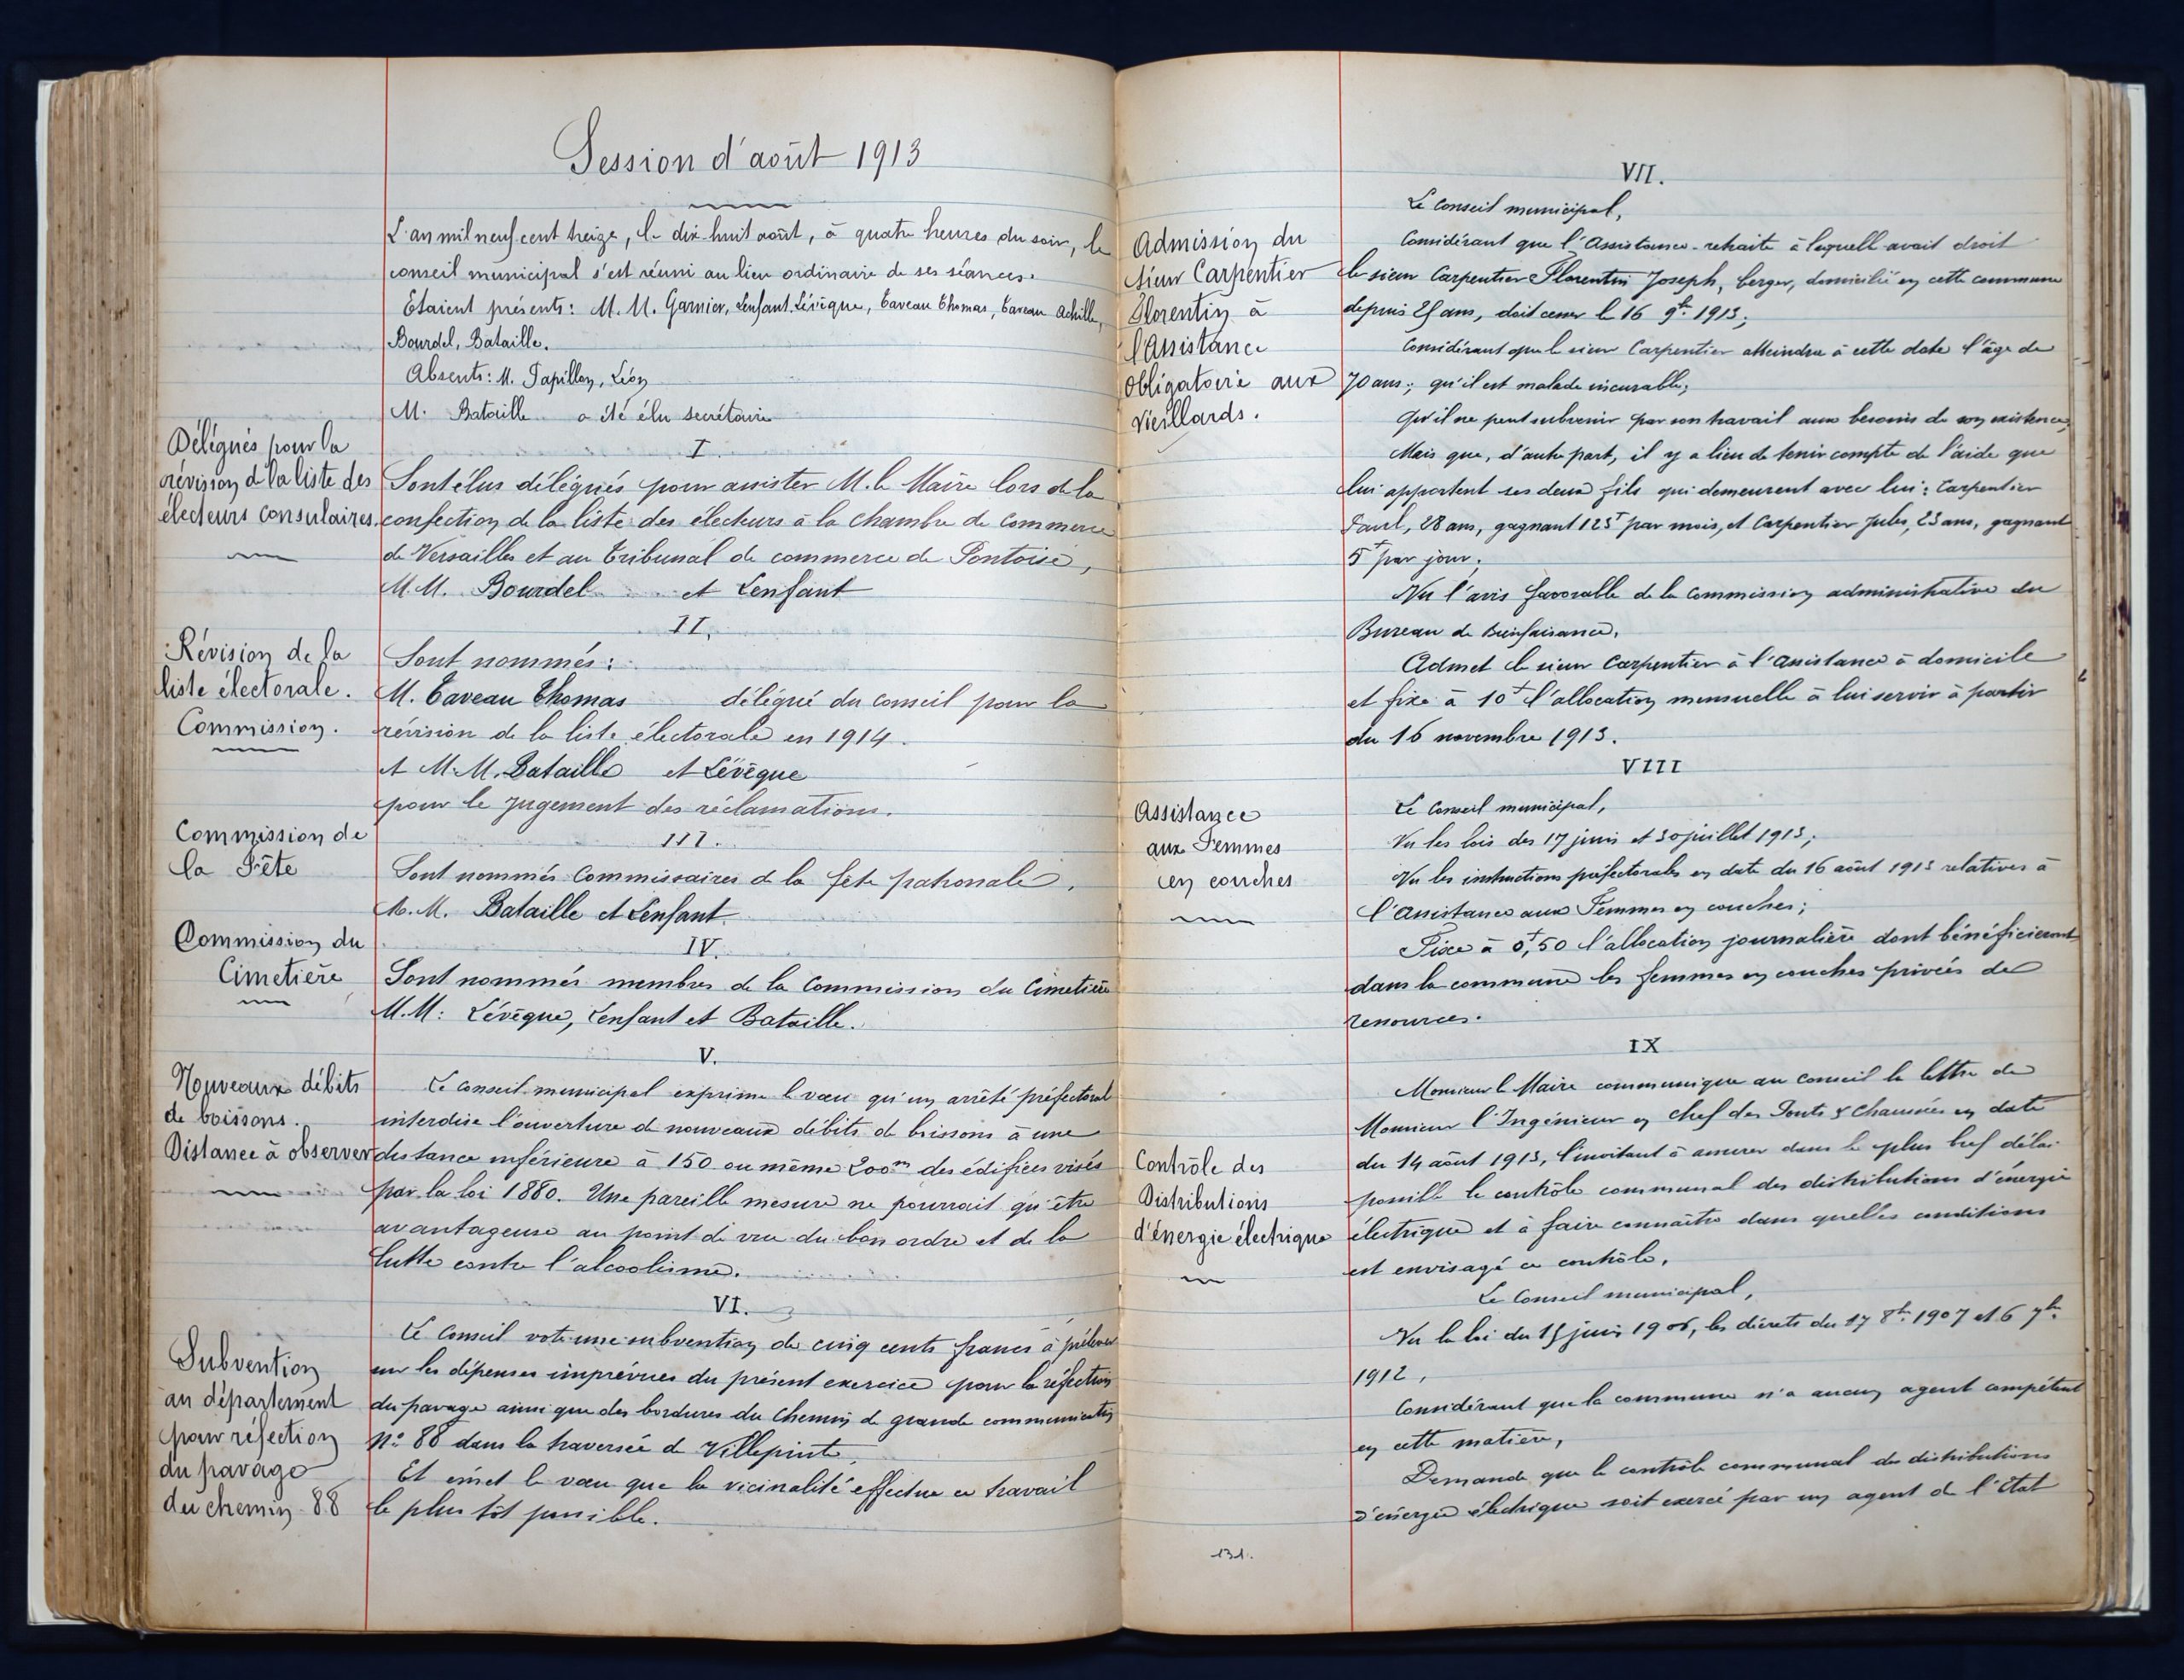 Session d'août 1913
L'an mil neuf cent treize, le dix-huit août, à quatre heures du soir, le
conseil municipal s'est réuni au lieu ordinaire de ses séances.
Etaient présents: M. M. Garnier, Lenfant, Lévêque, Taveau Thomas, Taveau Achille,
Bourdel, Bataille.
Absents: M. Papillon, Léon
M. Bataille a été élu secrétaire
Délégués pour la
révision de la liste des
électeurs consulaires.
I.
Sont élus délégués pour assister M. le Maire lors de la
confection de la liste des électeurs à la chambre de Commerce
de Versailles et au Tribunal de commerce de Pontoise,
M.M. Bourdel et Lenfant
Révision de la
liste électorale.
Commission.
II.
Sont nommés:
M. Taveau Thomas délégué du conseil pour la
révision de la liste électorale en 1914.
et M.M. Bataille et Lévêque
pour le jugement des réclamations.
Commission de
la Fête
III.
Sont nommés Commissaires de la fête patronale,
M.M. Bataille et Lenfant.
Commission du
Cimetière
IV.
Sont nommés membres de la Commission du Cimetière
M.M: Lévêque, Lenfant et Bataille.
Nouveaux débits
de boissons.
Distance à observer
V.
Le conseil municipal exprime le vœu qu'un arrêté préfectoral
interdise l'ouverture de nouveaux débits de boissons à une
distance inférieure à 150 ou même 200m des édifices visés
par la loi 1880. Une pareille mesure ne pourrait qu'être
avantageuse au point de vue du bon ordre et de la
lutte contre l'alcoolisme.
Subvention
au département
pour réfection
du pavage
du chemin 88
VI.
Le Conseil vote une subvention de cinq cents francs à prélever
sur les dépenses imprévues du présent exercice pour la réfection
du pavage ainsi que des bordures du Chemin de grande communication
N° 88 dans la traversée de Villepinte,
Et émet le vœu que la vicinalité effectue ce travail
le plus tôt possible.
Admission du
sieur Carpentier
Florentin à
l'Assistance
Obligatoire aux
Vieillards.
VII.
Le Conseil municipal,
Considérant que l'Assistance-retraite à laquelle avait droit
le sieur Carpentier Florentin Joseph, berger, domicilié en cette commune
depuis 25 ans, doit cesser le 16 9bre 1913;
Considérant que le sieur Carpentier atteindra à cette date l'âge de
70 ans; qu'il est malade incurable;
Qu'il ne peut subvenir par son travail aux besoins de son existence,
Mais que, d'autre part, il y a lieu de tenir compte de l'aide que
lui apportent ses deux fils qui demeurent avec lui: Carpentier
Paul, 28 ans, gagnant 125f par mois, et Carpentier Jules, 23 ans, gagnant
5f par jour;
Vu l'avis favorable de la Commission administrative du
Bureau de Bienfaisance,
Admet le sieur Carpentier à l'Assistance à domicile
et fixe à 10f l'allocation mensuelle à lui servir à partir
du 16 novembre 1913.
Assistance
aux Femmes
en couches
VIII
Le Conseil municipal,
Vu les lois des 17 juin et 30 juillet 1913;
Vu les instructions préfectorales en date du 16 août 1913 relatives à
l'Assistance aux Femmes en couches;
Fixe à 0f,50 l'allocation journalière dont bénéficieront
dans la commune les femmes en couches privées de
ressources.
Contrôle des
Distributions
d'énergie électrique
IX
Monsieur le Maire communique au Conseil la lettre de
Monsieur l'Ingénieur en chef des Ponts & Chaussées en date
du 14 août 1913, l'invitant à assurer dans le plus bref délai
possible le contrôle communal des distributions d'énergie
électrique et à faire connaître dans quelles conditions
est envisagé ce contrôle.
Le Conseil municipal,
Vu la loi du 15 juin 1906, les décrets du 17 8bre 1907 et 6 7bre
1912,
Considérant que la commune n'a aucun agent compétent
en cette matière,
Demande que le contrôle communal des distributions
d'énergie électrique soit exercé par un agent de l'Etat
131.